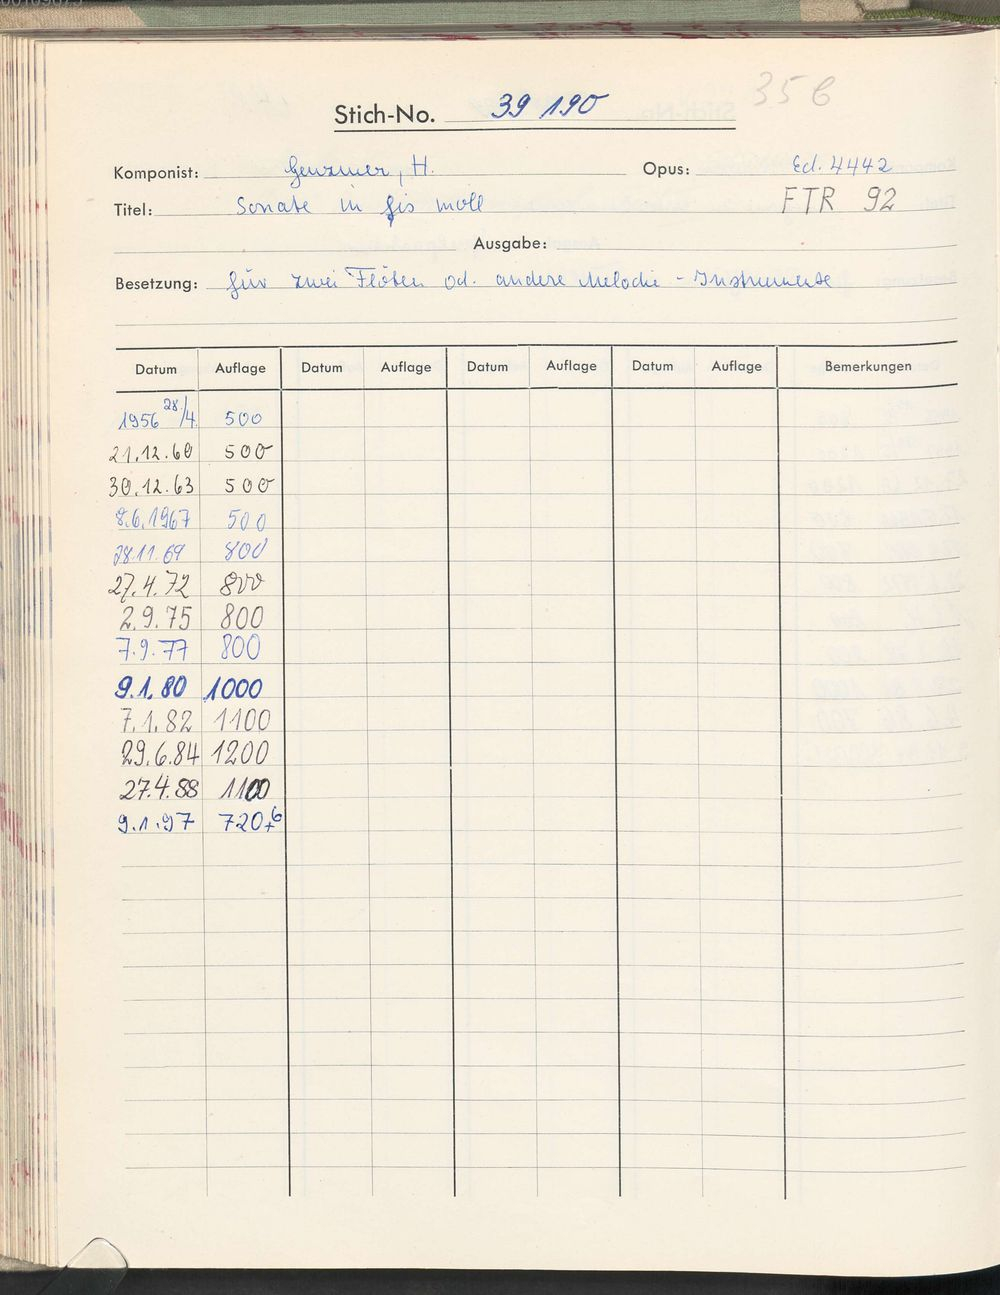 356
Stich-No. 39 190
Komponist: Genzmer, H. Opus: Ed. 4442
Titel: Sonate in fis moll FTR 92
Ausgabe:
Besetzung: für zwei Flöten od. andere Melodie-Instrumente
Datum Auflage Datum Auflage Datum Auflage Datum Auflage Bemerkungen
1956 28./4. 500
21.12.60 500
30.12.63 500
8.6.1967 500
28.11.69 800
27.4.72 800
2.9.75 800
7.9.77 800
9.1.80 1000
7.1.82 1100
29.6.84 1200
27.4.88 1100
9.1.97 720+6